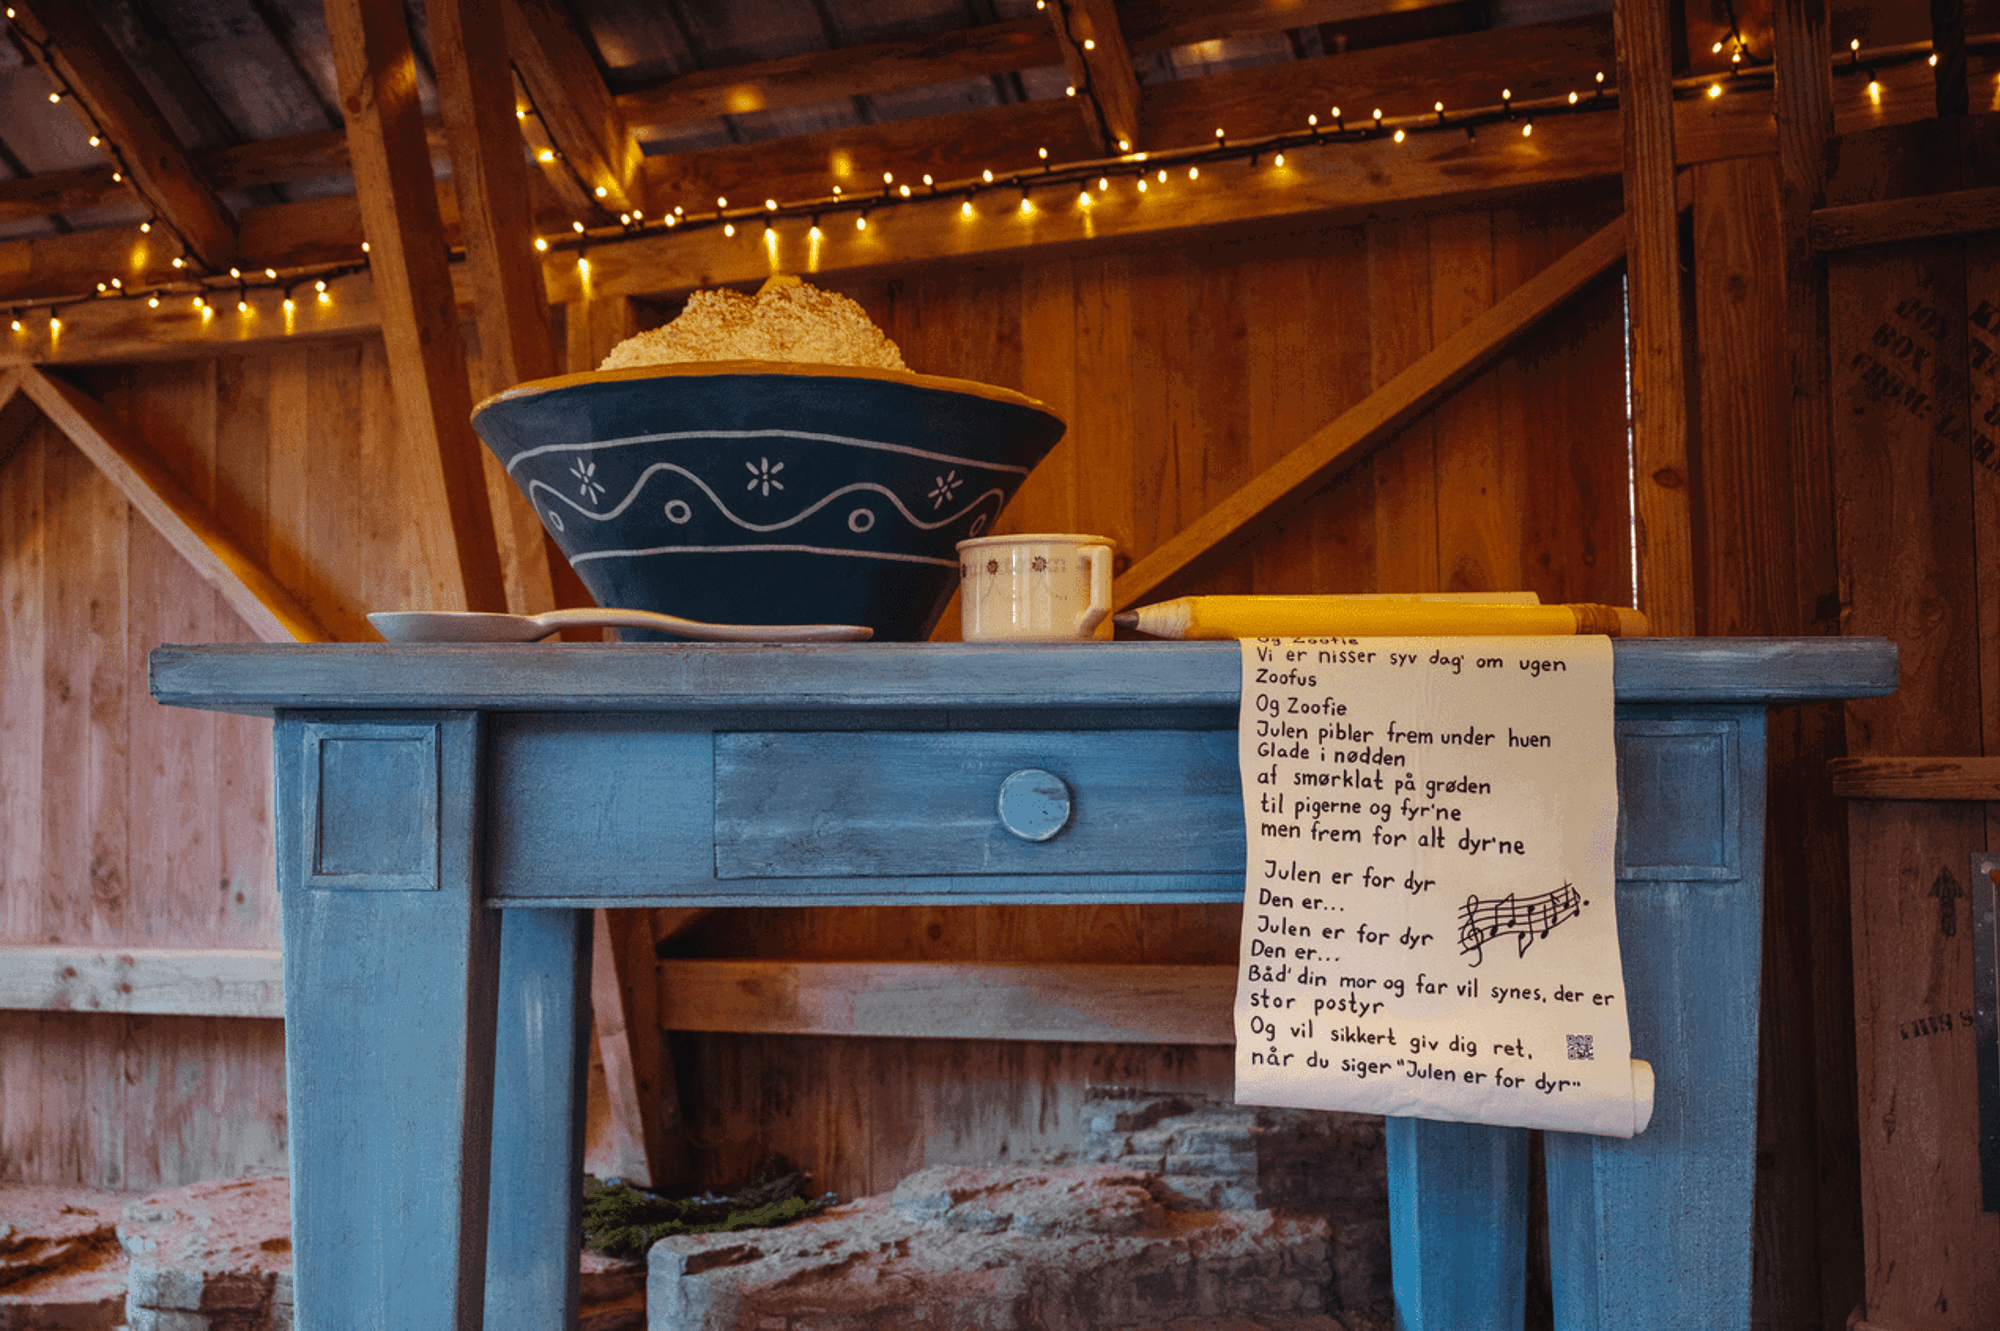 Og Zoofie
Vi er nisser syv dag' om ugen
Zoofus
Og Zoofie
Julen pibler frem under huen
Glade i nødden
af smørklat på grøden
til pigerne og fyr'ne
men frem for alt dyr'ne
Julen er for dyr
Den er...
Julen er for dyr
Den er...
Båd' din mor og far vil synes, der er
stor postyr
Og vil sikkert giv dig ret,
når du siger "Julen er for dyr"
BOX
BOX
FROM:
THIS S